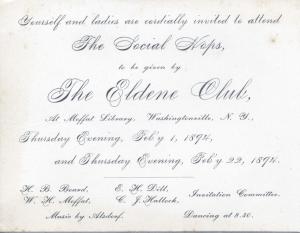 Yourself and ladies are cordially invited to attend
The Social Hops,
to be given by
The Eldene Club,
At Moffat Library, Washingtonville, N. Y.,
Thursday Evening, Feb'y 1, 1894,
and Thursday Evening, Feb'y 22, 1894.
H. B. Beard, E. H. Dill, Invitation Committee.
W. H. Moffat, C. J. Hallock,
Music by Alsdorf. Dancing at 8.30.